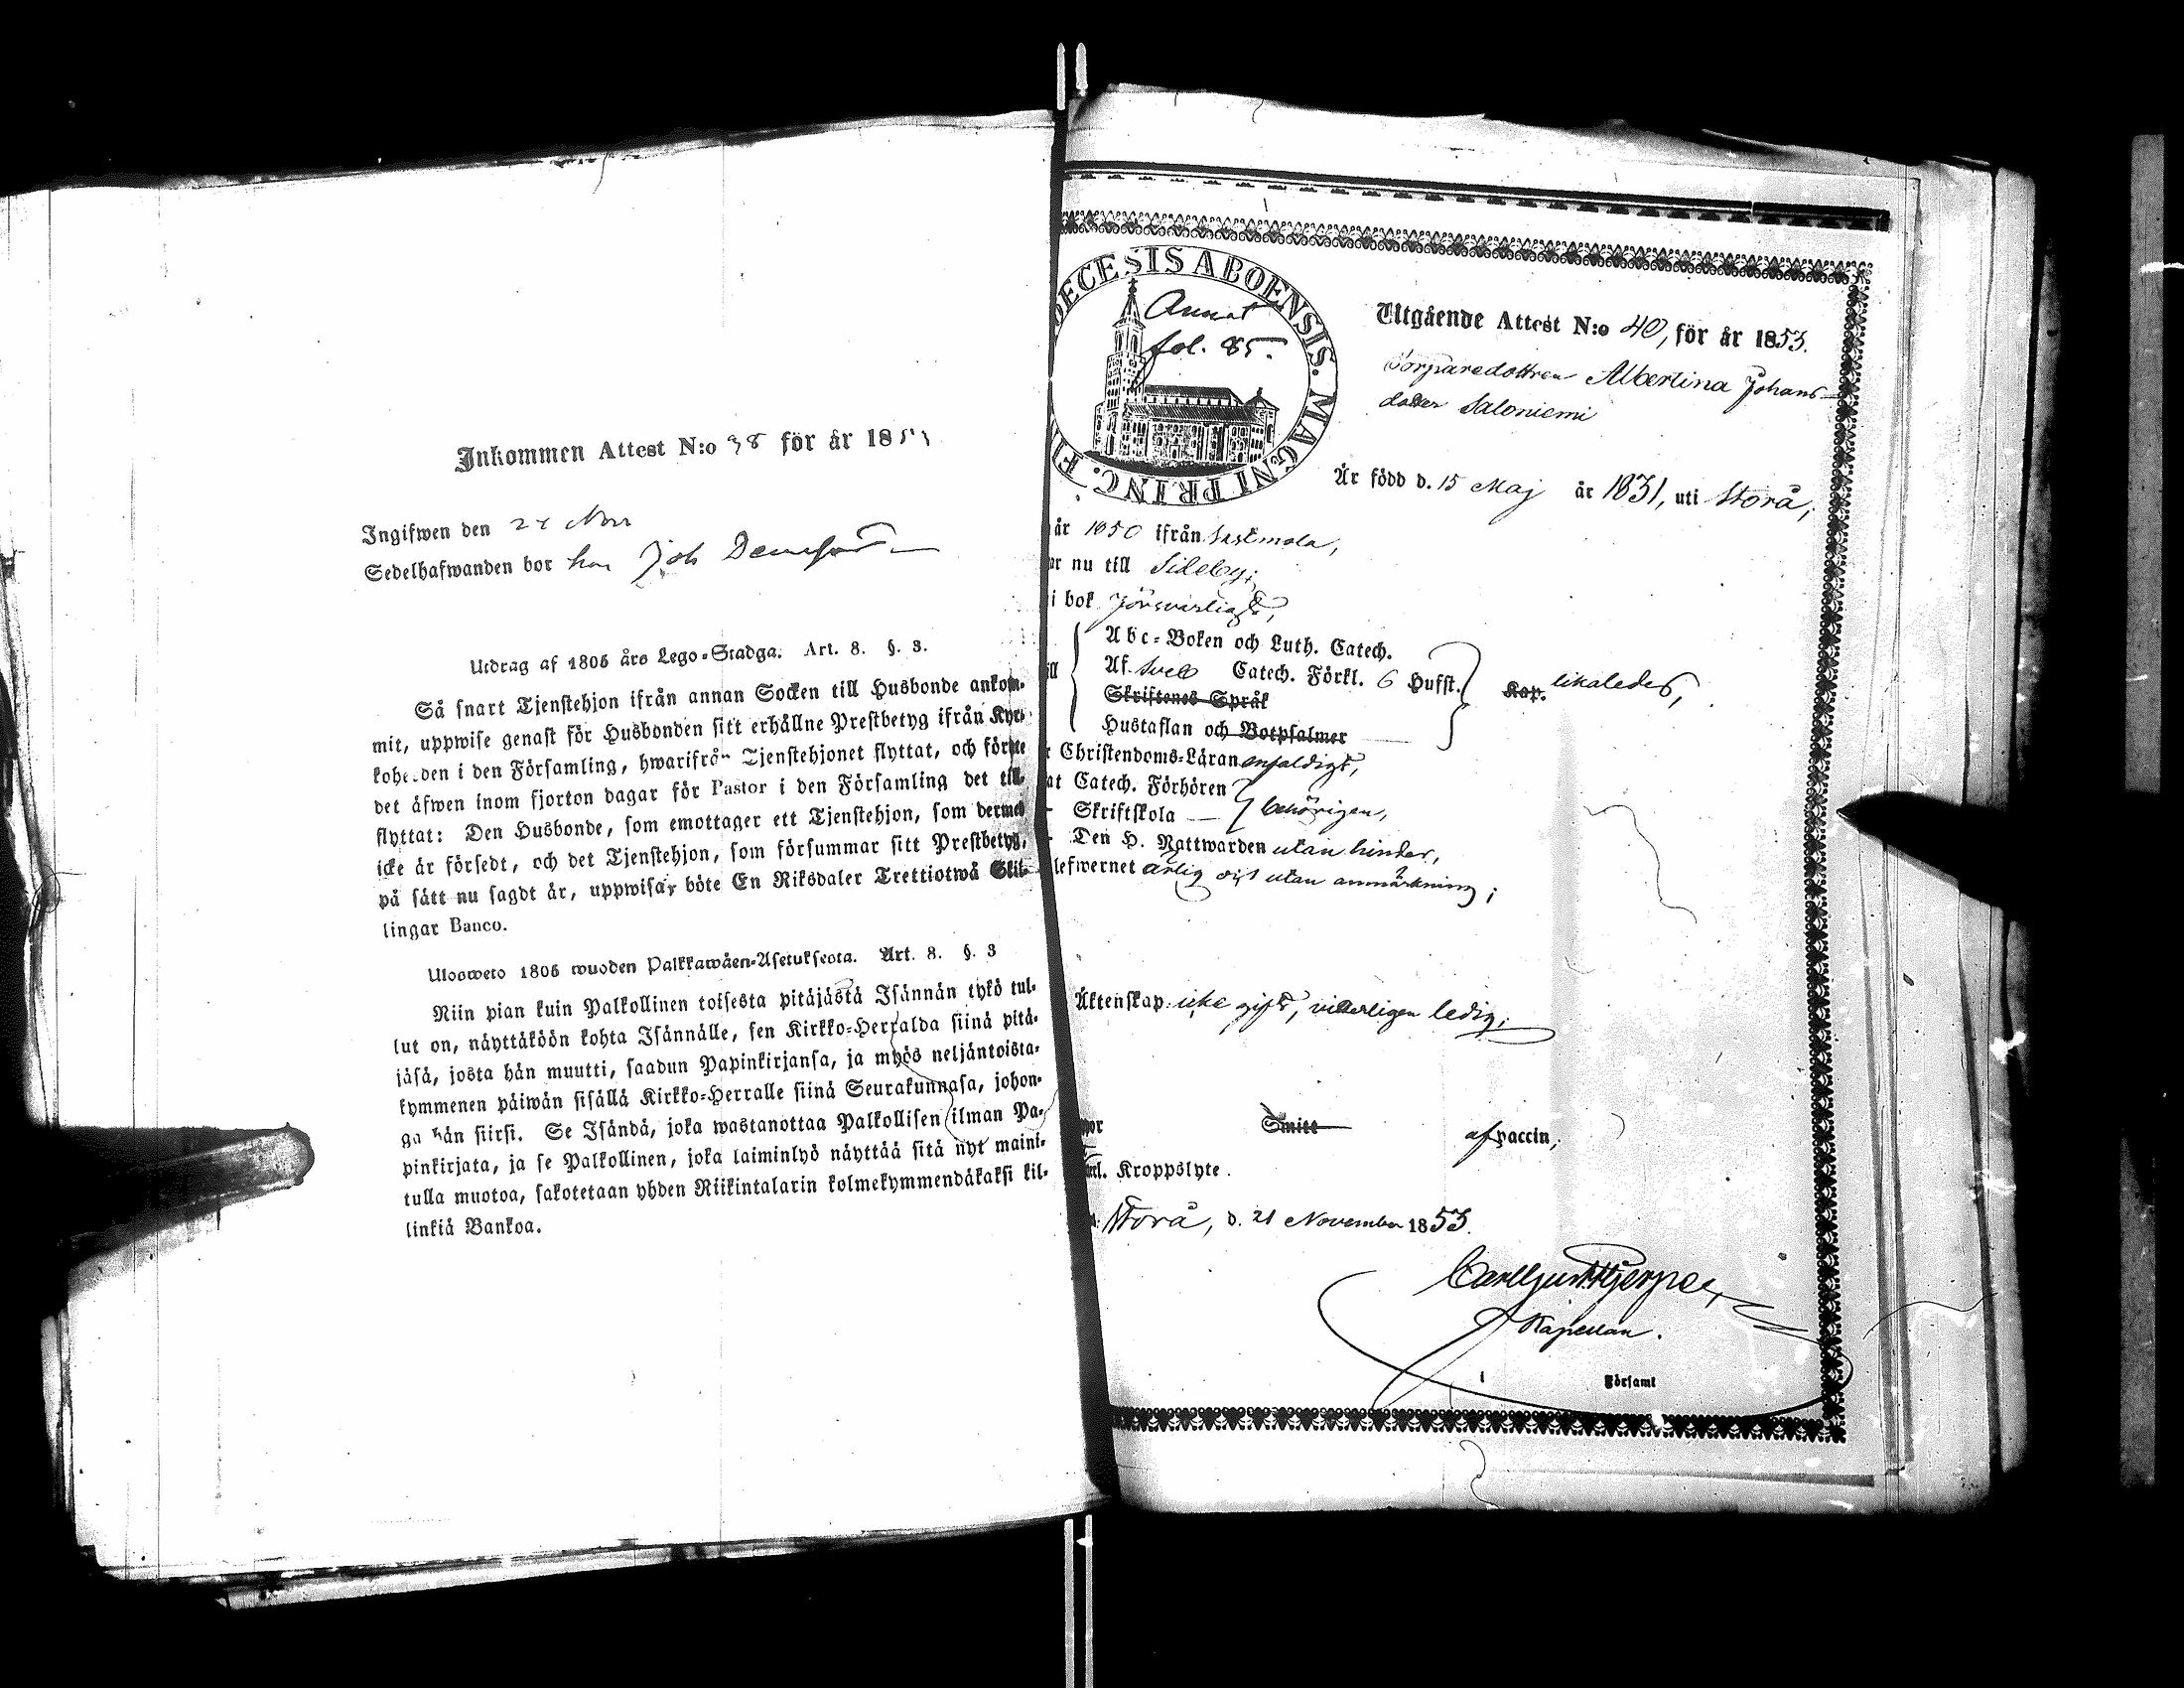 Inkommen Attest N:o 38 för år 1853
Ingifwen den 24 Nov
Sedelhafwanden bor hos Joh
Utdrag af 1805 års Lego-Stadga. Art. 8. §. 3.
Så snart Tjenstehjon ifrån annan Socken till Husbonde ankom-
mit, uppwise genast för Husbonden sitt erhållne Prestbetyg ifrån Kyr-
koherden i den Församling, hwarifrån Tjenstehjonet flyttat, och förete
det äfwen inom fjorton dagar för Pastor i den Församling det till-
flyttat: Den Husbonde, som emottager ett Tjenstehjon, som dermed
icke är försedt, och det Tjenstehjon, som försummar sitt Prestbetyg,
på sätt nu sagdt är, uppwisa, böte En Riksdaler Trettiotwå Skil-
lingar Banco.
Ulosweto 1805 wuoden Palkkawäen-Asetuksesta. Art. 8. §. 3
Niin pian kuin Palkollinen toisesta pitäjästä Isännän tykö tul-
lut on, näyttäköön kohta Isännälle, sen Kirkko-Herralda siinä pitä-
jäsä, josta hän muutti, saadun Papinkirjansa, ja myös neljäntoista-
kymmenen päiwän sisällä Kirkko-Herralle siinä Seurakunnasa, johon-
ga hän siirsi. Se Isändä, joka wastanottaa Palkollisen ilman Pa-
pinkirjata, ja se Palkollinen, joka laiminlyö näyttää sitä nyt maini-
tulla muotoa, sakotetaan yhden Riikintalarin kolmekymmendäkaksi kil-
linkiä Bankoa.
DECESIS ABOENSIS. MAGNI PRINC. FI
Annat
fol. 85.
Utgående Attest N:o 40, för år 1853.
Torparedottren Albertina Johans-
dotter Saloniemi
Är född d. 15 Maj år 1831, uti Storå,
år 1850 ifrån Sastmola,
nu till Sideby;
i bok försvarligt,
Abc-Boken och Luth. Catech.
Af Sveb Catech. Förkl. 6 Hufst. Kap. likaledes,
Skriftenes Språk
Hustaflan och Botpsalmer
Christendoms-Läran enfaldigt,
at Catech. Förhören
Skriftskola behörigen,
Den H. Nattwarden utan hinder,
lefwernet ärlig och utan anmärkning;
Äktenskap icke gift, vitterligen ledig;
Smitt af vaccin;
Kroppslyte.
Storå, d. 21 November 1853.
Carl Gust. Hjerpe
Kapellan.
i Församl